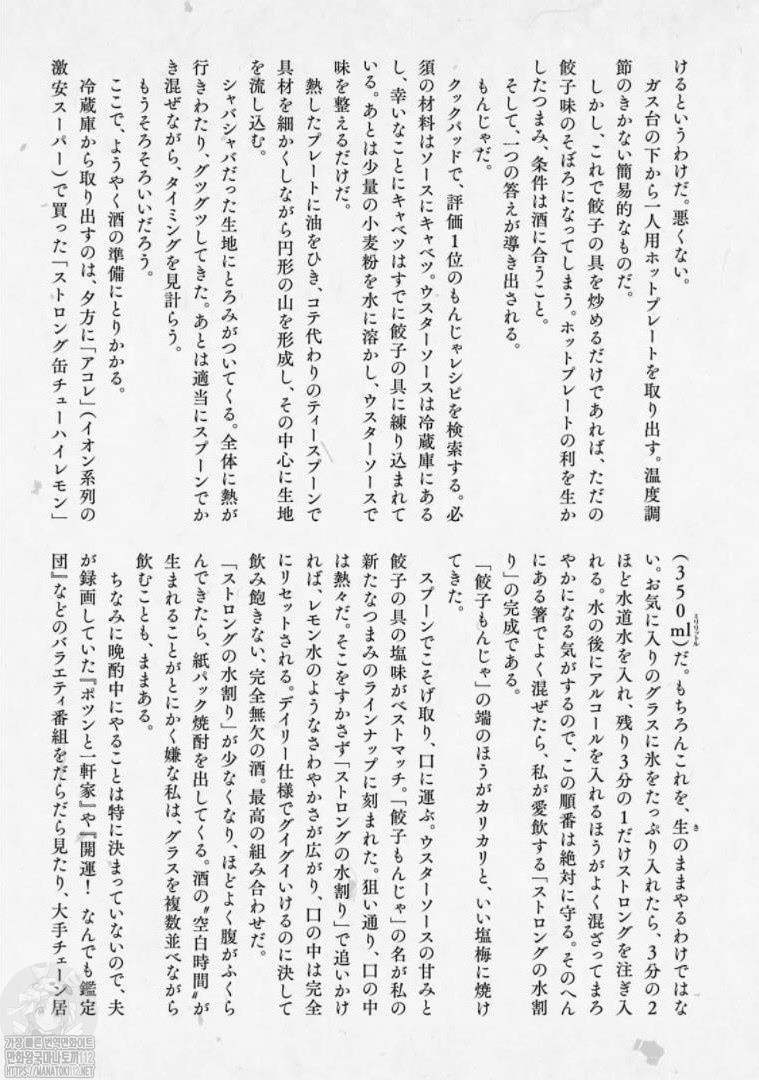 けるというわけだ。悪くない。
　ガス台の下から一人用ホットプレートを取り出す。温度調
節のきかない簡易的なものだ。
　しかし、これで餃子の具を炒めるだけであれば、ただの
餃子味のそぼろになってしまう。ホットプレートの利を生か
したつまみ、条件は酒に合うこと。
　そして、一つの答えが導き出される。
　もんじゃだ。
　クックパッドで、評価1位のもんじゃレシピを検索する。必
須の材料はソースにキャベツ。ウスターソースは冷蔵庫にある
し、幸いなことにキャベツはすでに餃子の具に練り込まれて
いる。あとは少量の小麦粉を水に溶かし、ウスターソースで
味を整えるだけだ。
　熱したプレートに油をひき、コテ代わりのティースプーンで
具材を細かくしながら円形の山を形成し、その中心に生地
を流し込む。
　シャバシャバだった生地にとろみがついてくる。全体に熱が
行きわたり、グツグツしてきた。あとは適当にスプーンでか
き混ぜながら、タイミングを見計らう。
　もうそろそろいいだろう。
　ここで、ようやく酒の準備にとりかかる。
　冷蔵庫から取り出すのは、夕方に「アコレ」(イオン系列の
激安スーパー)で買った「ストロング缶チューハイレモン」
(350mlミリリットル)だ。もちろんこれを、生きのままやるわけではな
い。お気に入りのグラスに氷をたっぷり入れたら、3分の2
ほど水道水を入れ、残り3分の1だけストロングを注ぎ入
れる。水の後にアルコールを入れるほうがよく混ざってまろ
やかになる気がするので、この順番は絶対に守る。そのへん
にある箸でよく混ぜたら、私が愛飲する「ストロングの水割
り」の完成である。
　「餃子もんじゃ」の端のほうがカリカリと、いい塩梅に焼け
てきた。
　スプーンでこそげ取り、口に運ぶ。ウスターソースの甘みと
餃子の具の塩味がベストマッチ。「餃子もんじゃ」の名が私の
新たなつまみのラインナップに刻まれた。狙い通り、口の中
は熱々だ。そこをすかさず「ストロングの水割り」で追いかけ
れば、レモン水のようなさわやかさが広がり、口の中は完全
にリセットされる。デイリー仕様でグイグイいけるのに決して
飲み飽きない、完全無欠の酒。最高の組み合わせだ。
　「ストロングの水割り」が少なくなり、ほどよく腹がふくら
んできたら、紙パック焼酎を出してくる。酒の〝空白時間〟が
生まれることがとにかく嫌な私は、グラスを複数並べながら
飲むことも、ままある。
　ちなみに晩酌中にやることは特に決まっていないので、夫
が録画していた『ポツンと一軒家』や『開運！ なんでも鑑定
団』などのバラエティ番組をだらだら見たり、大手チェーン居
가장 빠른 번역만화이트
만화왕국마나토끼112
HTTPS://MANATOKI112